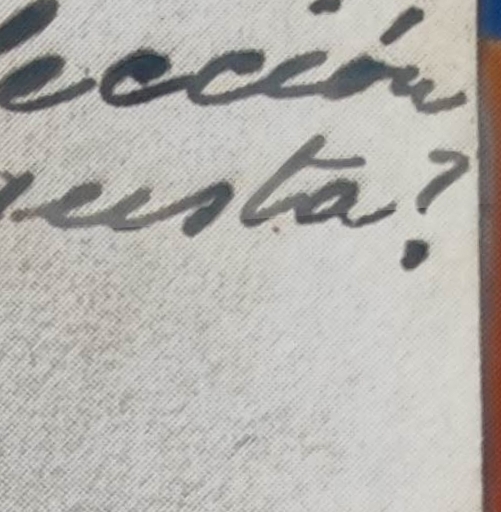 lección
gusta?